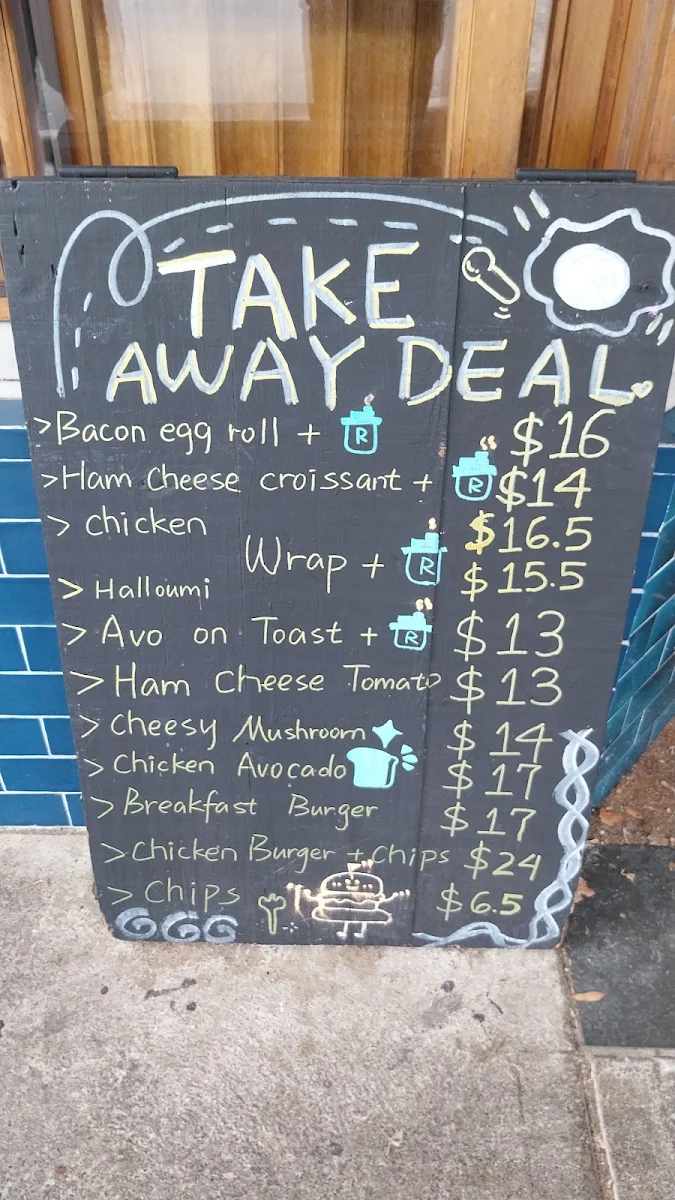 TAKE
AWAY DEAL
>Bacon egg roll + R $16
>Ham Cheese croissant + R $14
> chicken $16.5
Wrap + R
> Halloumi $15.5
> Avo on Toast + R $13
> Ham Cheese Tomato $13
> Cheesy Mushroom $14
> Chicken Avocado $17
> Breakfast Burger $17
> Chicken Burger + Chips $24
> Chips $6.5